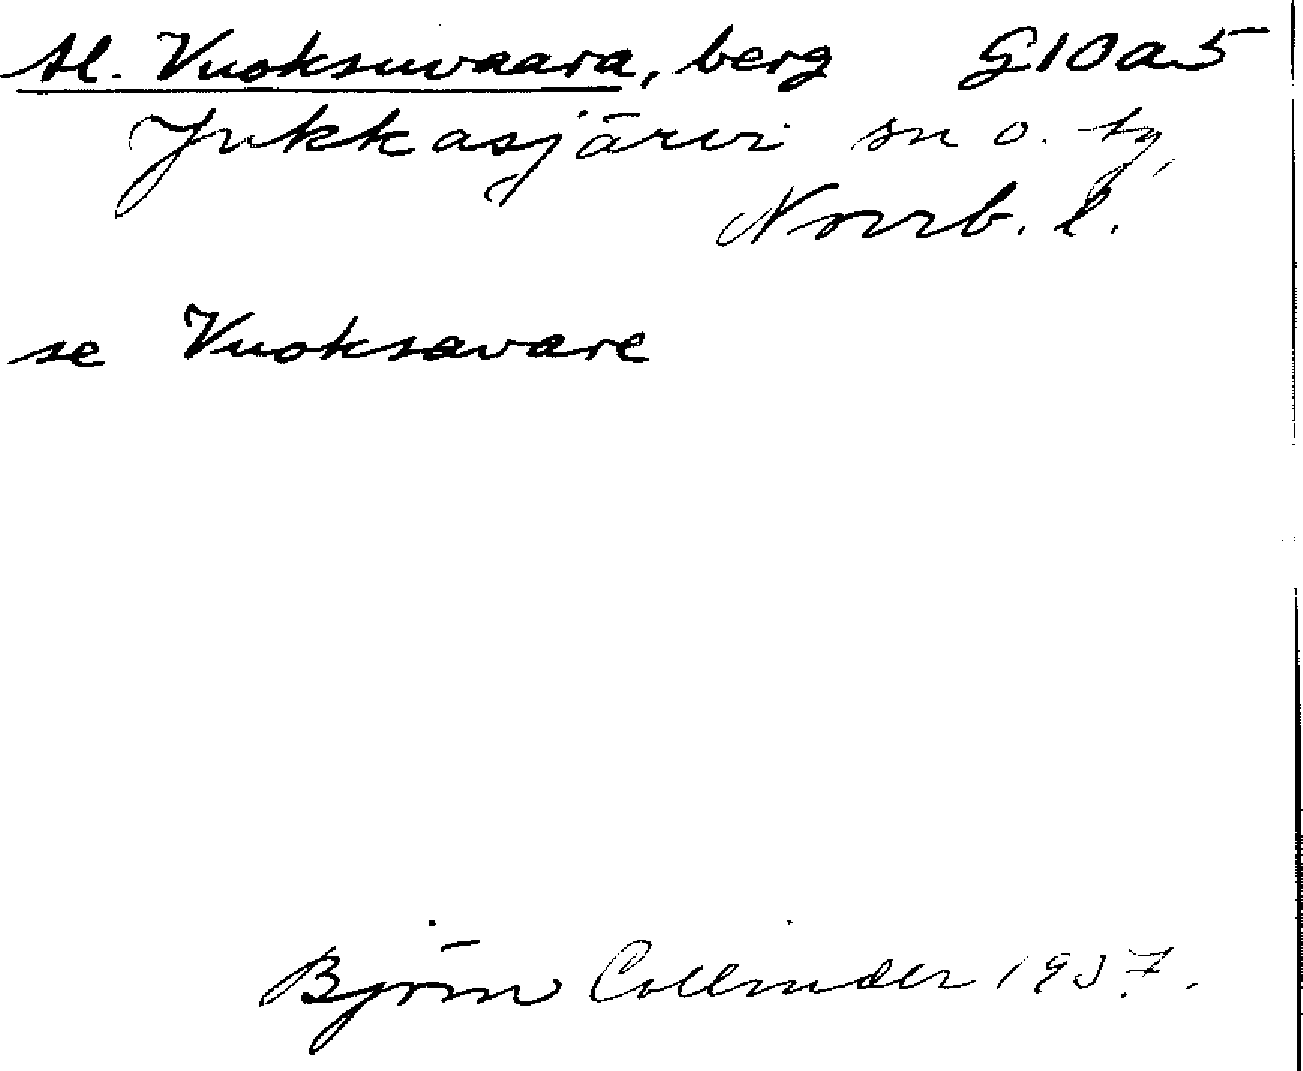 st. Vuoksuvaara, berg G10a5
Jukkasjärvi sn o. tg,
Norrb. l.
se Vuoksavare
Björn Collinder 1937.